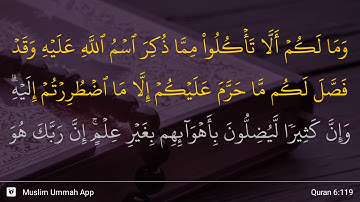 وَمَا لَكُمْ أَلَّا تَأْكُلُوا۟ مِمَّا ذُكِرَ ٱسْمُ ٱللَّهِ عَلَيْهِ وَقَدْ
فَصَّلَ لَكُم مَّا حَرَّمَ عَلَيْكُمْ إِلَّا مَا ٱضْطُرِرْتُمْ إِلَيْهِ ۗ
وَإِنَّ كَثِيرًا لَّيُضِلُّونَ بِأَهْوَآئِهِم بِغَيْرِ عِلْمٍ ۗ إِنَّ رَبَّكَ هُوَ
Muslim Ummah App
Quran 6:119